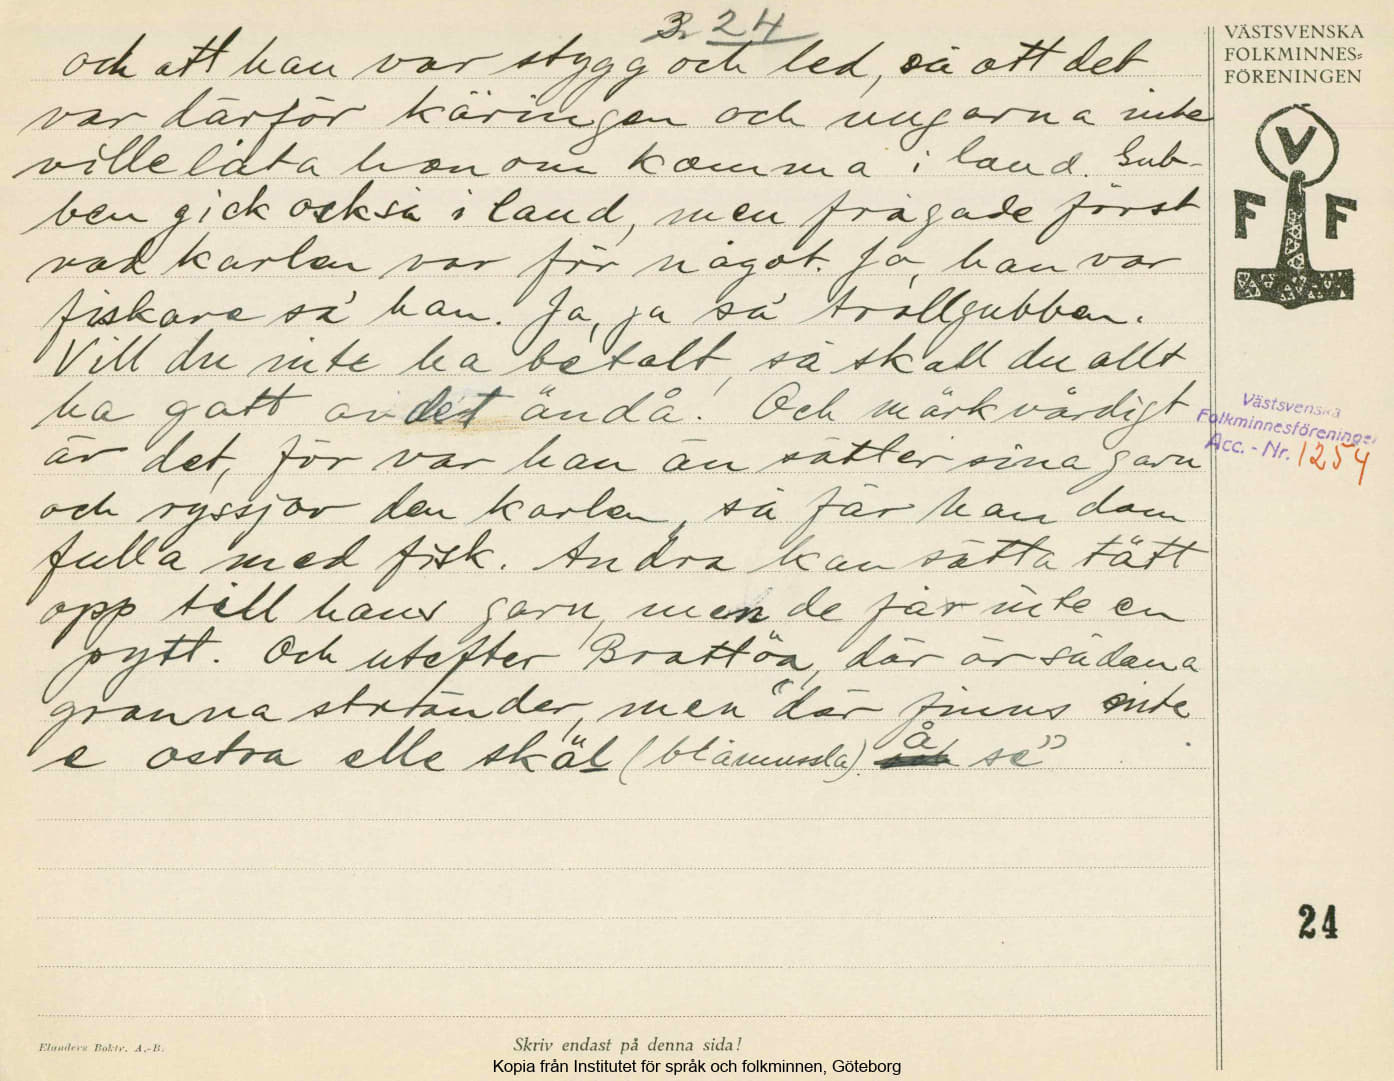 3. 24
och att han var stygg och led, så att det
var därför käringen och ungarna inte
ville låta honom komma i land. Gub-
ben gick också i land, men frågade först
vad karlen var för något. Ja, han var
fiskare sa' han. Ja, ja sa' trollgubben.
Vill du inte ha betalt, så skall du allt
ha gott av det ändå! Och märkvärdigt
är det, för var han än sätter sina garn
och ryssjor den karlen, så får han dom
fulla med fisk. Andra kan sätta tätt
opp till hans garn, men de får inte en
pytt. Och utefter Brattön, där är sådana
granna stränder, men "där finns inte
e ostra elle skäl (blåmussla). å se"
VÄSTSVENSKA
FOLKMINNES-
FÖRENINGEN
V
F F
Västsvenska
Folkminnesföreningen
Acc. - Nr. 1254
24
Elanders Boktr. A.-B.
Skriv endast på denna sida!
Kopia från Institutet för språk och folkminnen, Göteborg